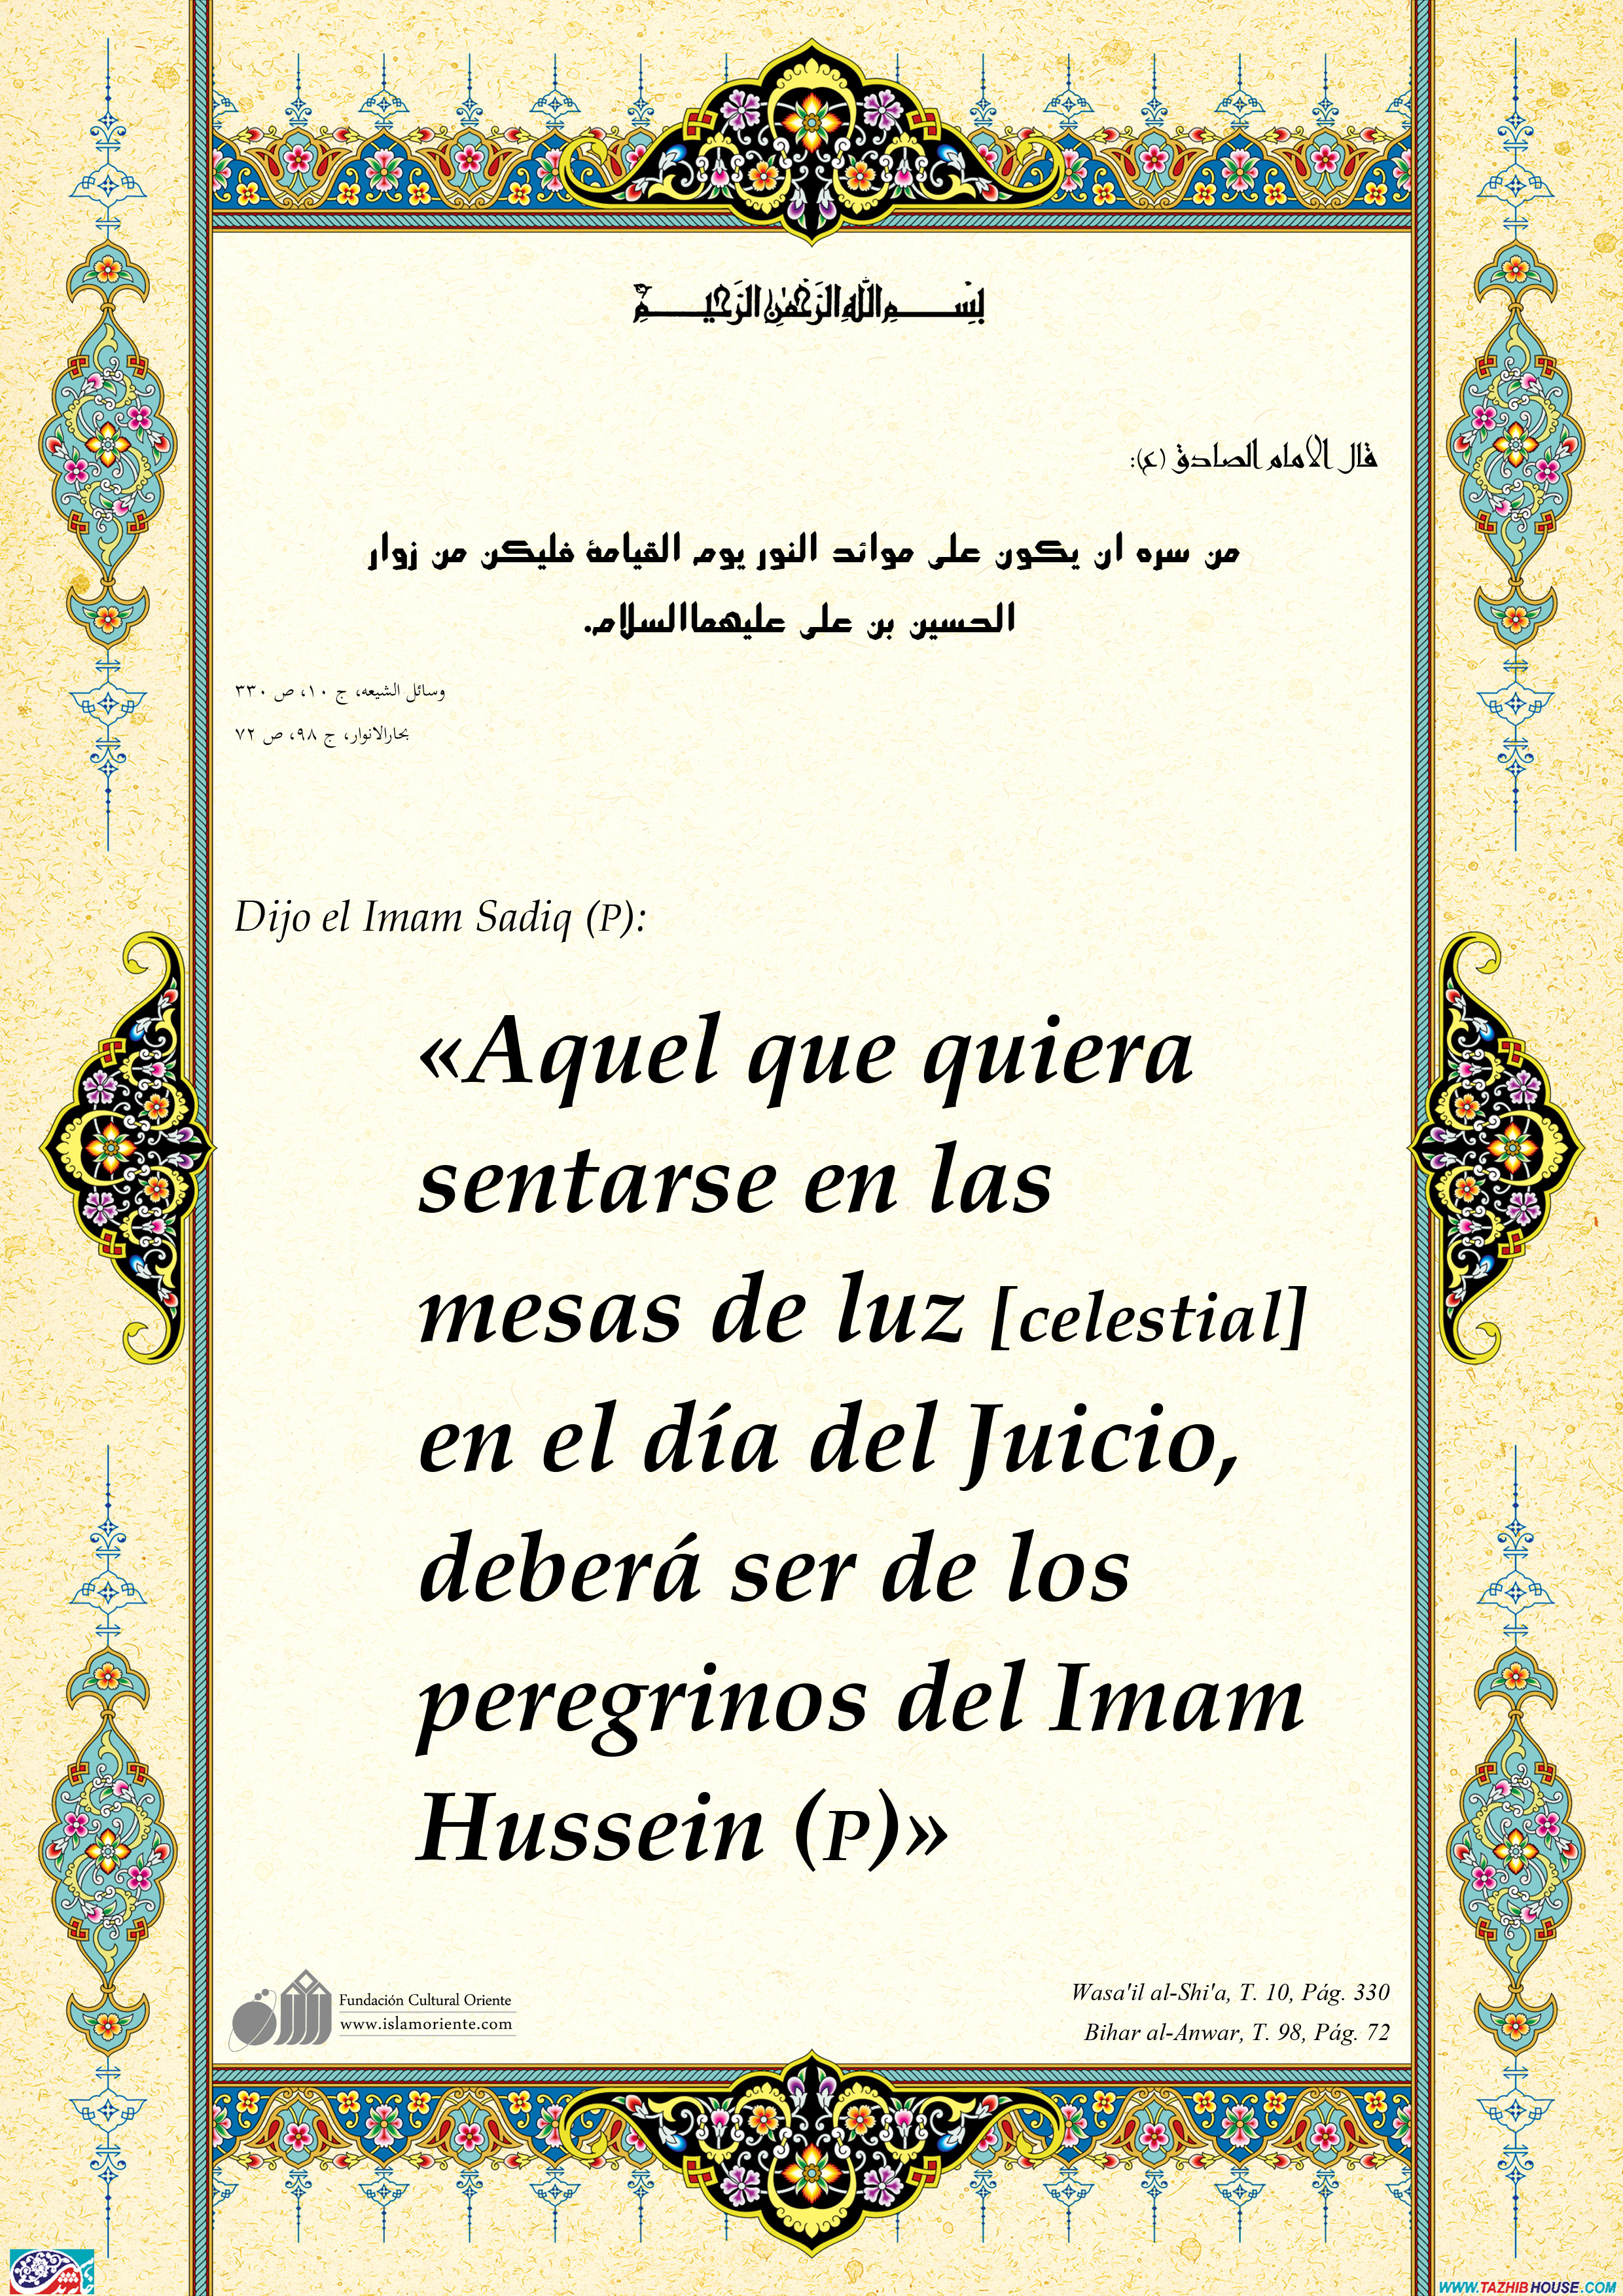 بِسْمِ اللَّهِ الرَّحْمَٰنِ الرَّحِيمِ
قال الامام الصادق (ع):
من سره ان يكون على موائد النور يوم القيامة فليكن من زوار
الحسين بن على عليهماالسلام.
وسائل الشيعه، ج ۱۰، ص ۳۳۰
بحارالانوار، ج ۹۸، ص ۷۲
Dijo el Imam Sadiq (P):
«Aquel que quiera
sentarse en las
mesas de luz [celestial]
en el día del Juicio,
deberá ser de los
peregrinos del Imam
Hussein (P)»
Fundación Cultural Oriente
www.islamoriente.com
Wasa'il al-Shi'a, T. 10, Pág. 330
Bihar al-Anwar, T. 98, Pág. 72
WWW.TAZHIBHOUSE.COM